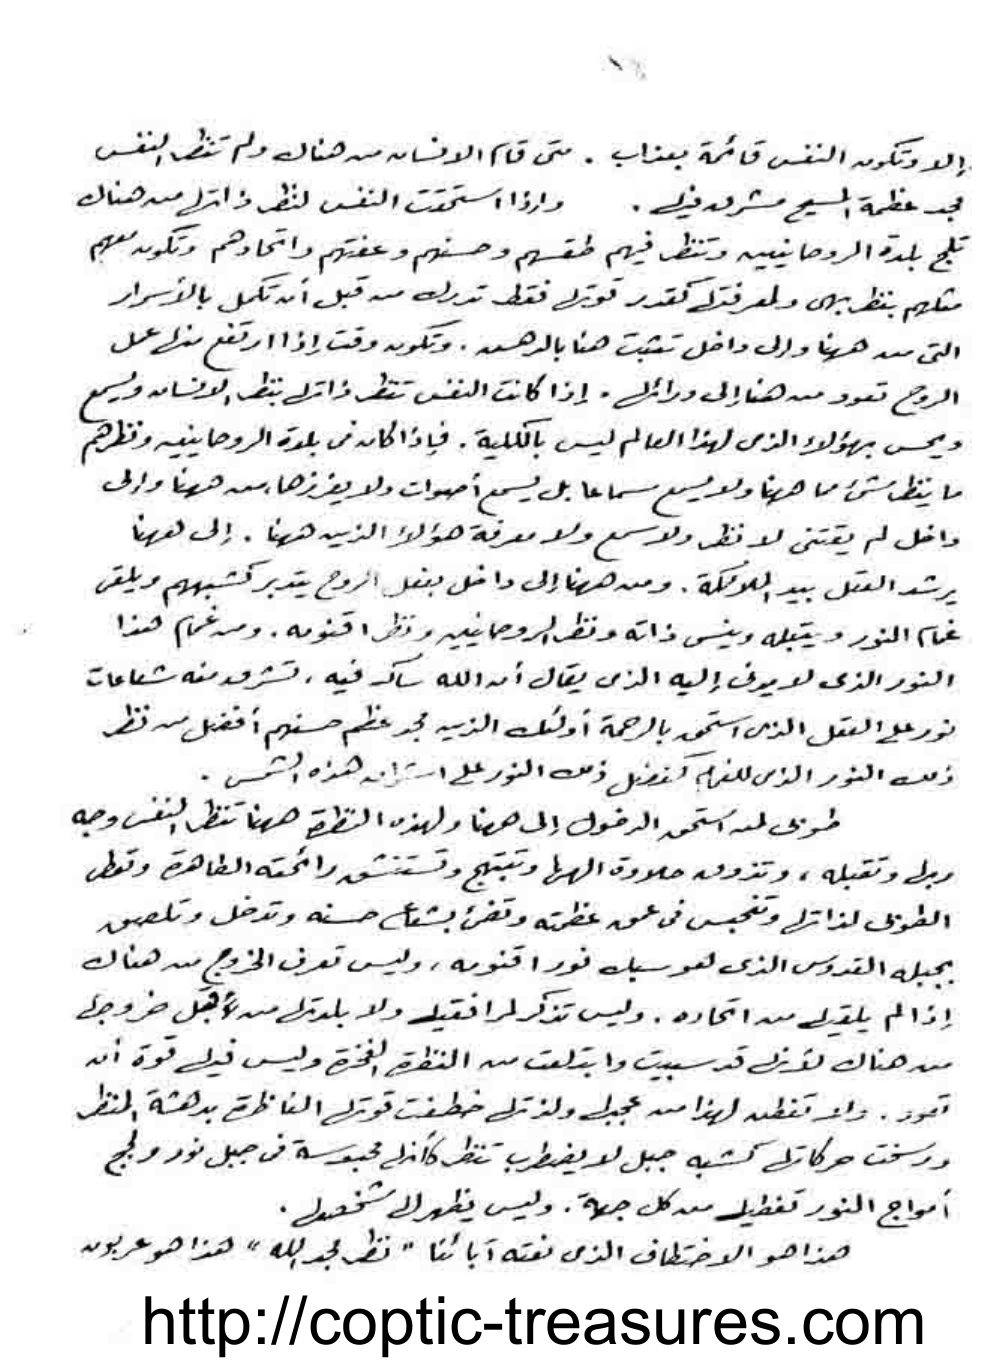 إلا وتكون النفس قائمة بعذاب . متى قام الانسان من هناك ولم تنظر النفس
مجد عظمة المسيح مشرق فيها . وإذا استحقت النفس لنظر ذاتها من هناك
تلج بلدة الروحانيين وتنظر فيهم طقسهم وحسنهم وعفتهم واتحادهم وتكون معهم
مثلهم بنظر بهى ولمعرفتها كقدر قوتها فقط تدرك من قبل أن تكمل بالأسرار
التى من ههنا وإلى داخل تثبت هنا بالدهش . وتكون وقت إذا ارتفع منها عمل
الروح تعود من هنا إلى ورائها . إذا كانت النفس تنظر ذاتها ينظر الانسان ويسمع
ويحس بهؤلاء الذى لهذا العالم ليس بالكلية . فإذا كان فى بلدة الروحانيين ونظرهم
ما ينظر شئ مما ههنا ولا يسمع سماعا بل يسمع أصوات ولا يفرزها، من ههنا وإلى
داخل لم يقتنى لا نظر ولا سمع ولا معرفة هؤلاء الذين ههنا . إلى ههنا
يرشد العقل بيد الملائكة . ومن ههنا إلى داخل بفعل الروح يتدبر كشبههم ويلقى
غمام النور ويبتلعه وينسى ذاته ونظر الروحانيين ونظر اقنومه . ومن غمام هذا
النور الذى لا يدنى إليه الذى يقال أن الله ساكن فيه ، تشرق منه شعاعات
نور على العقل الذى استحق بالرحمة أولئك الذين مجد عظم حسنهم أفضل من نظر
ذلك النور الذى للغمام كفضل ذلك النور على اشراق هذه الشمس .
طوبى لمن استحق الدخول إلى ههنا ولهذه النظرة ههنا تنظر النفس وجه
ربها وتقبله ، وتذوق حلاوة الهها وتبتهج وتستنشق رائحته الطاهرة وتعطى
الطوبى لذاتها وتنحبس فى عمق عظمته وتضئ بشعاع حسنه وتدخل وتلصق
بجبله القدوس الذى هو سبك نور اقنومه ، وليس تعرف الخروج من هناك
إذا لم يلقيها من اتحاده . وليس تذكر لمرافقيها ولا بلدتها من لأجل خروجها
من هناك لأنها قد سبيت وابتلعت من النظرة الفخرة وليس فيها قوة أن
تعود . ولا تفطن لهذا من عجبها ولذتها خطفت قوتها الناظرة بدهشة المنظر
ورسخت حركاتها كشبه جبل لا يضطرب تنظر كأنها محبوسة فى جبل نور ولجج
أمواج النور تغطيها من كل جهة . وليس يظهر لها شخصها .
هذا هو الاختطاف الذى نعته آبائنا " نظر مجد الله " هذا هو عربون
http://coptic-treasures.com